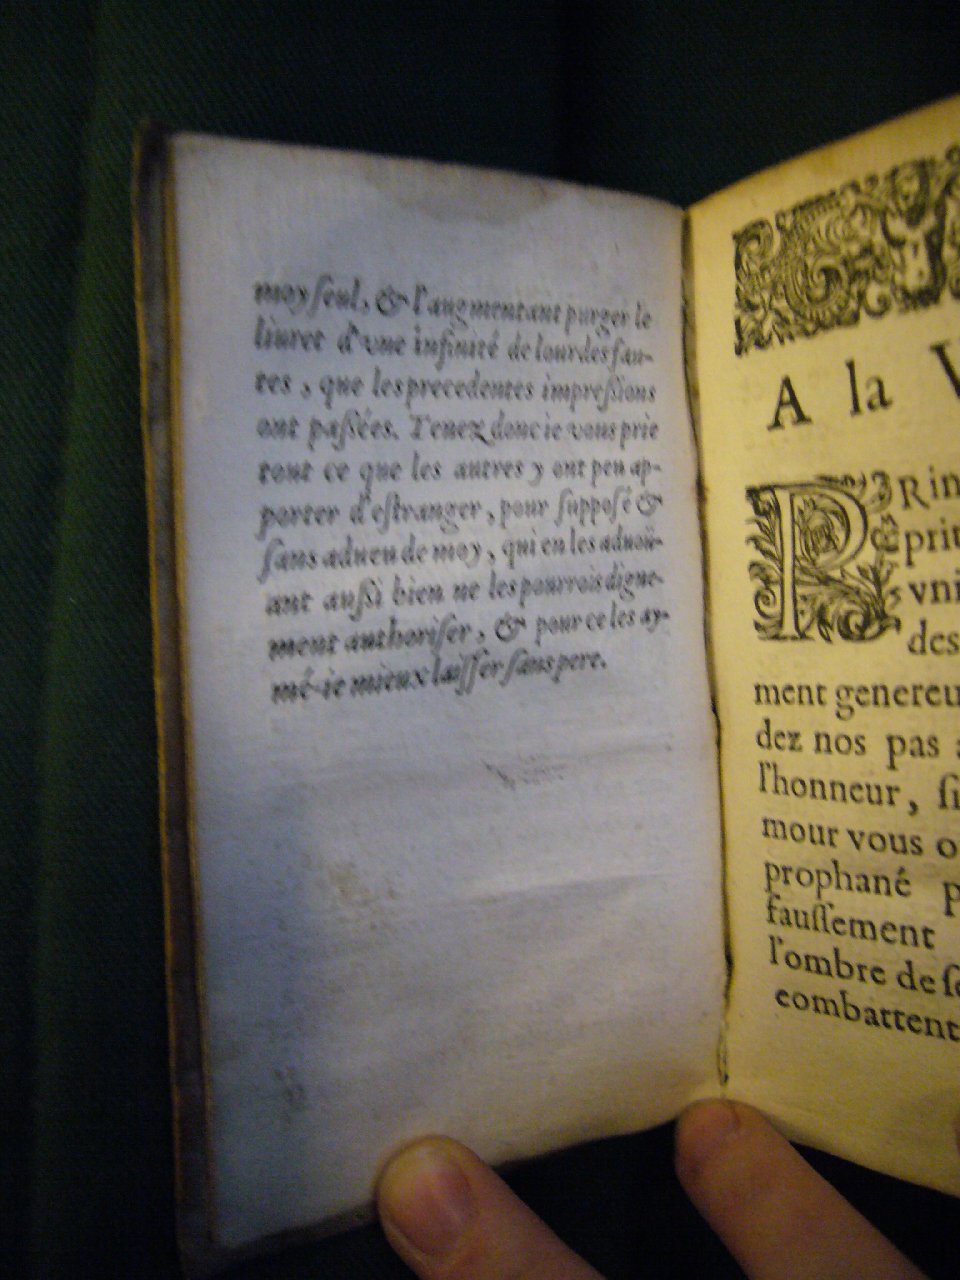 moy ſeul, & l'augmentant purger le
liuret d'vne infinité de lourdes fau-
tes, que les precedentes impreſſions
ont paſſées. Tenez donc ie vous prie
tout ce que les autres y ont peu ap-
porter d'eſtranger, pour ſuppoſé &
ſans adueu de moy, qui en les aduoü-
ant auſſi bien ne les pourrois digne-
ment authoriſer, & pour ce les ay-
mé-ie mieux laiſſer ſans pere.
A la V
PRin
prit
vni
des
ment genereu
dez nos pas
l'honneur, ſi
mour vous o
prophané p
fauſſement
l'ombre de ſe
combattent